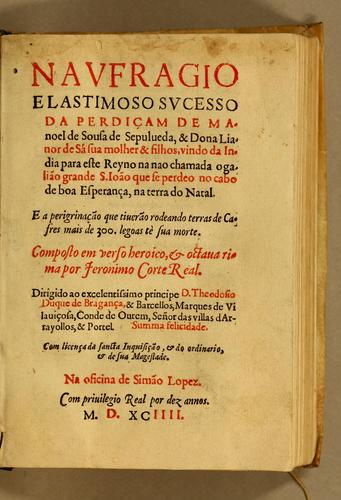 NAVFRAGIO
E LASTIMOSO SVCESSO
DA PERDIÇAM DE MA-
noel de Sousa de Sepulueda, & Dona Lia-
nor de Sâ sua molher & filhos, vindo da In-
dia para este Reyno na nao chamada o ga-
lião grande S. Ioão que se perdeo no cabo
de boa Esperança, na terra do Natal.
E a perigrinação que tiuerão rodeando terras de Ca-
fres mais de 300. legoas tè sua morte.
Composto em verso heroico, & octaua ri-
ma por Ieronimo Corte Real.
Dirigido ao excelentissimo principe D. Theodosio
Duque de Bragança, & Barcellos, Marques de Vi-
lauiçosa, Conde de Ourem, Señor das villas d'Ar-
rayollos, & Portel. Summa felicidade.
Com licença da sancta Inquisição, & do ordinario,
& de sua Magestade.
Na oficina de Simão Lopez.
Com priuilegio Real por dez annos.
M. D. XCIIII.